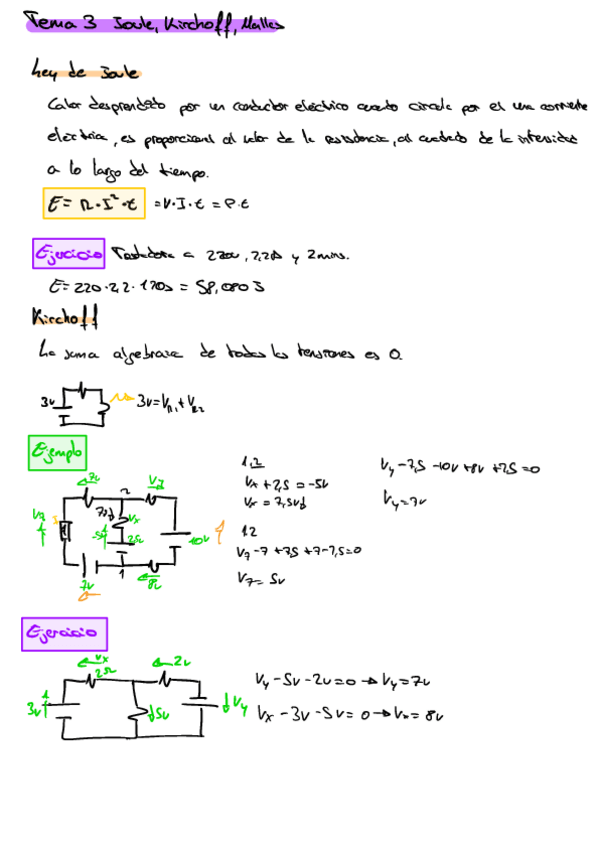 Tema 3 Joule, Kirchoff, Mallas
Ley de Joule
Calor desprendido por un conductor eléctrico cuando circula por el una corriente
eléctrica, es proporcional al valor de la resistencia, al cuadrado de la intensidad
a lo largo del tiempo.
E = R·I²·t = V·I·t = P·t
Ejercicio Tostadora a 220v, 2,2A y 2mins.
E = 220·2,2·120s = 58,080 J
Kirchoff
La suma algebraica de todas las tensiones es 0.
3v 3v = VR1 + VR2
Ejemplo
1,2
Vx + 2,5 = -5v
Vx = 7,5v
Vy - 7,5 - 10v + 8v + 2,5 = 0
Vy = 7v
12
Vz - 7 + 7,5 + 7 - 7,5 = 0
Vz = 5v
7v 2 Vx 10v 1 7v 8v
Ejercicio
Vx 2Ω 2v
3v 5v Vy
Vy - 5v - 2v = 0 → Vy = 7v
Vx - 3v - 5v = 0 → Vx = 8v